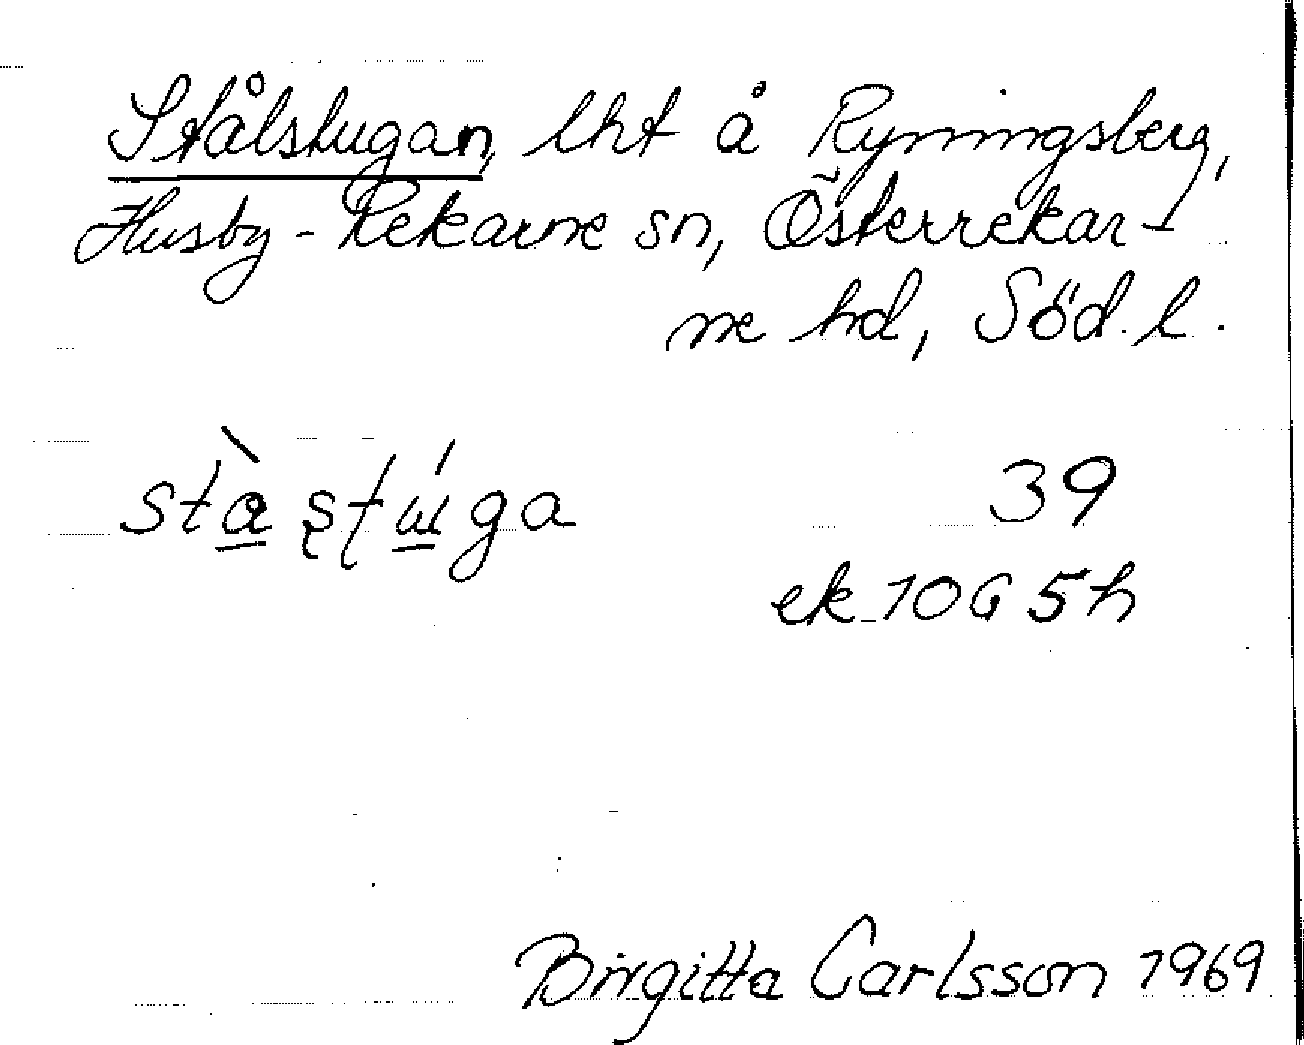 Stålstugan, lht å Ryningsberg,
Husby-Rekarne sn, Österrekar-
ne hd, Söd. l.
stàṣtúga 39
ek 10G 5h
Birgitta Carlsson 1969